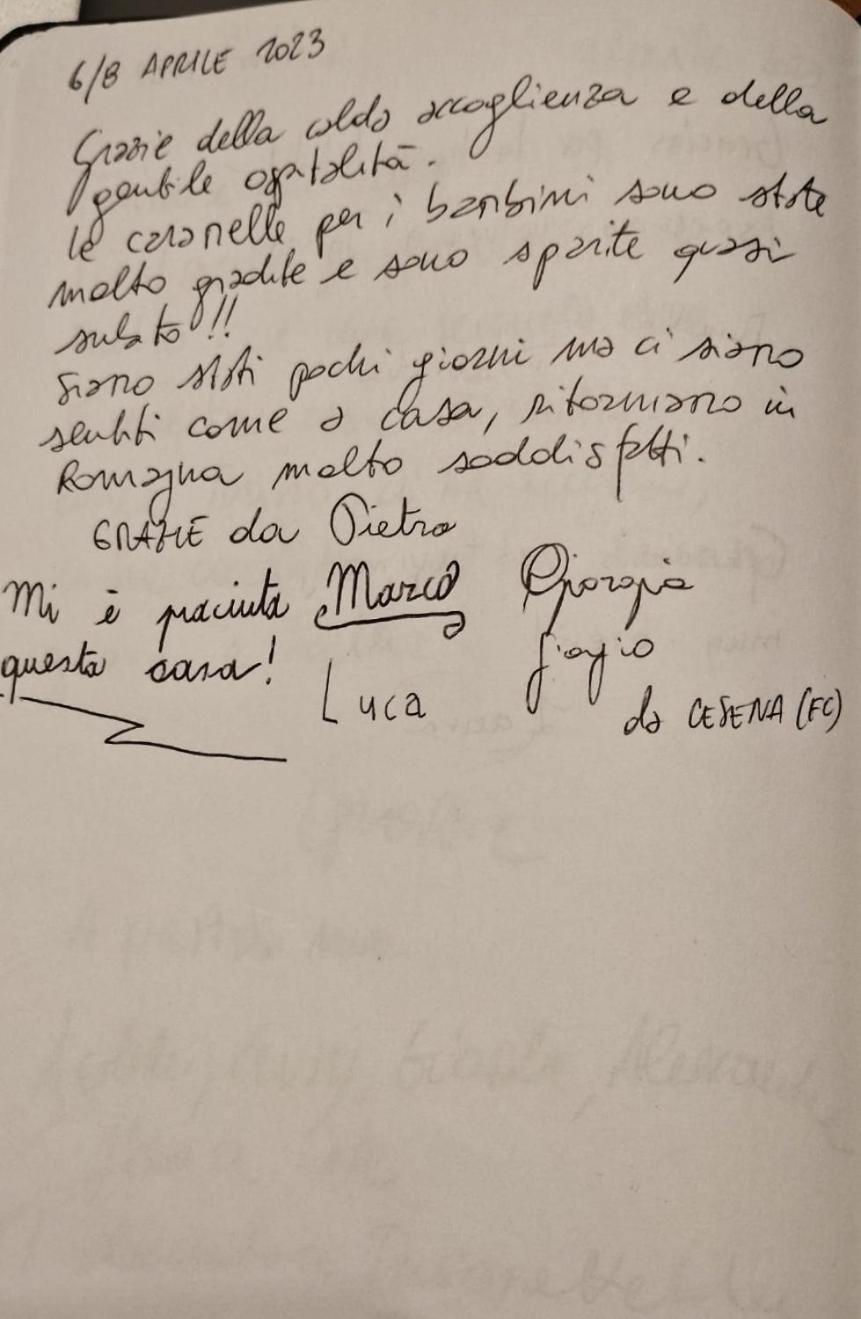 6/8 APRILE 2023
Grazie della calda accoglienza e della
gentile ospitalità.
le caramelle per i bambini sono state
molto gradite e sono sparite quasi
subito!!
Siamo stati pochi giorni ma ci siamo
sentiti come a casa, ritorniamo in
Romagna molto soddisfatti.
GRAZIE da Pietro
Mi è piaciuta Marco Giorgia
questa casa! Giorgio
Luca
da CESENA (FC)